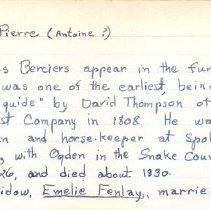 Pierre (Antoine ?)
s Berciers appear in the fur
was one of the earliest, bein
guide" by David Thompson of
st Company in 1808. He wa
n and horse-keeper at Spo
, with Ogden in the Snake Coun
26, and died about 1830.
idow, Emelie Fenlay, marrie